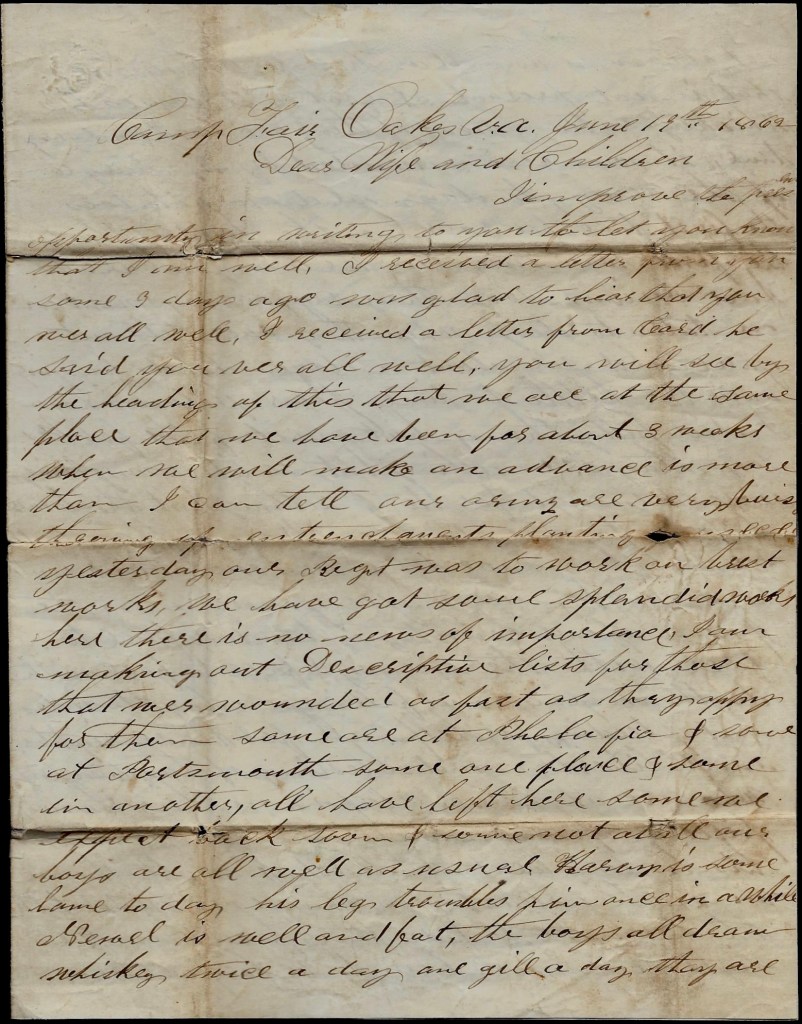 Camp Fair Oakes Va. June 19th 1862
Dear Wife and Children
I improve the
opportunity in writing to you to let you know
that I am well, I received a letter from you
some 3 days ago was glad to hear that you
wer all well, I received a letter from he
said you ver all well, you will see by
the heading of this that we are at the same
place that we have been for about 3 weeks
when we will make an advance is more
than I can tell our army are very
throing up planting
yesterday our Regt was to work on brest
works, we have got some splendid works
here there is no news of importance, I am
making out Descriptive lists for those
that wer wounded as fast as they appy
for them some are at & some
at Portsmouth some one place & some
in another, all have left here some we
expect back soon & some not at all our
boys are all well as usual is some
lame to day his leg troubles him once in a while
Newel is well and fat, the boys all draw
whiskey twice a day one gill a day they are